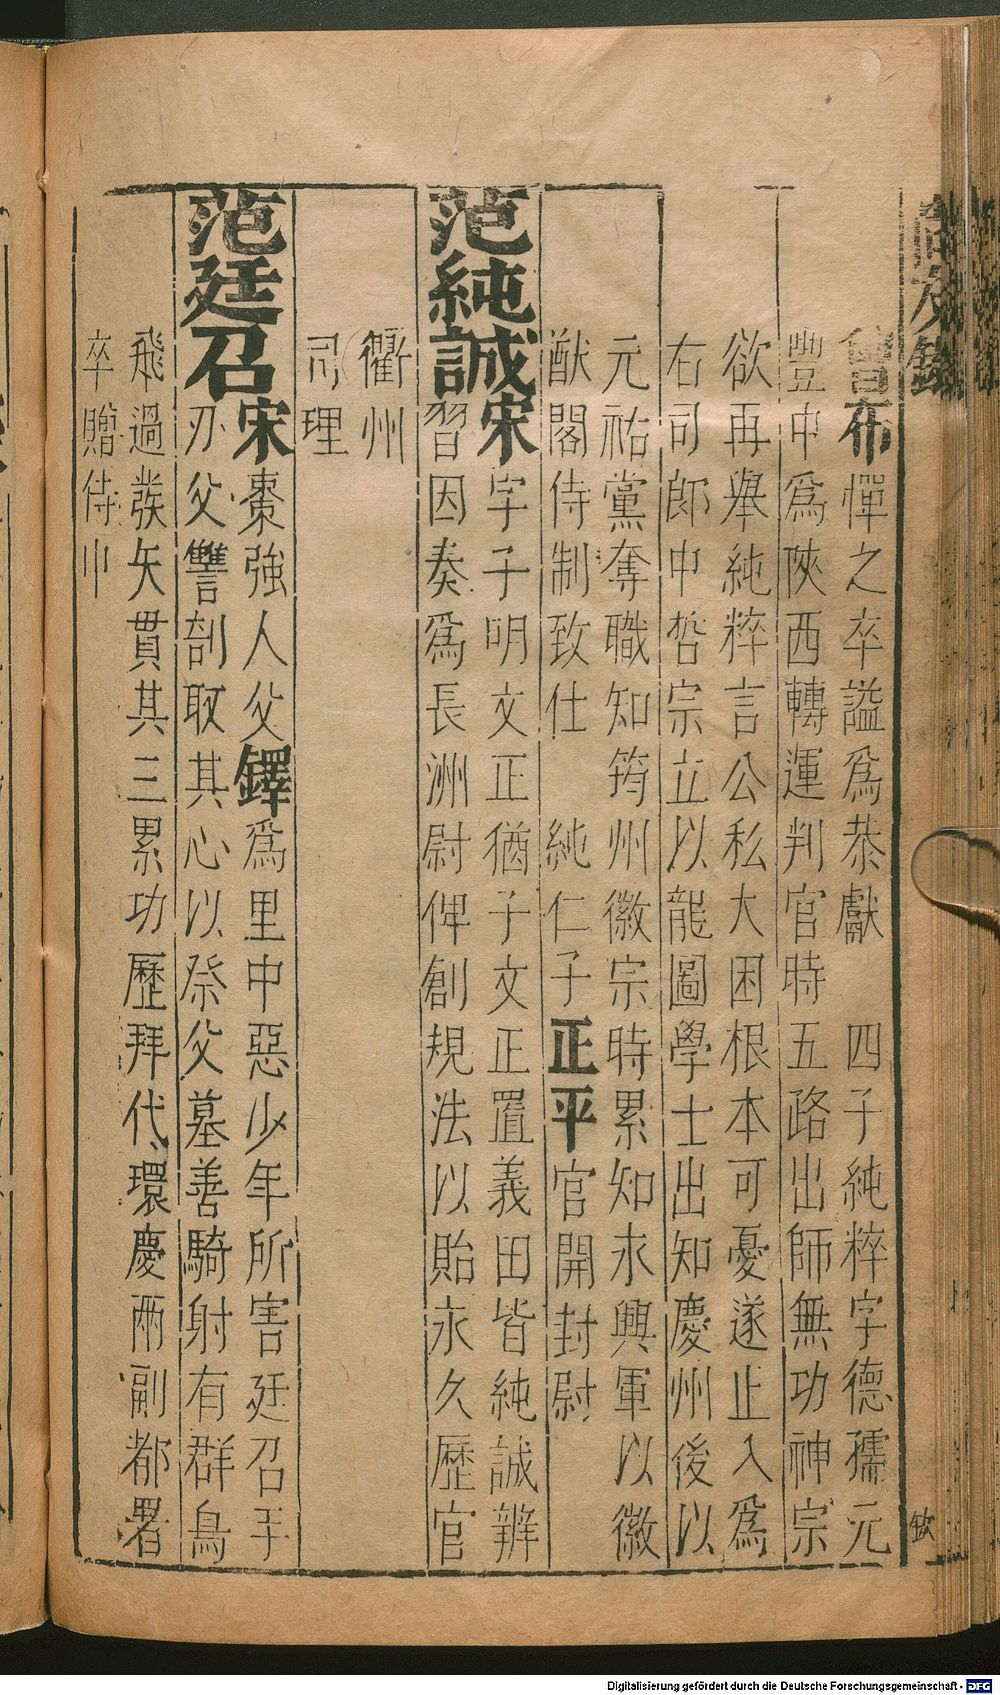 曾布憚之卒謚爲恭獻　四子純粹字德孺元
豐中爲陝西轉運判官時五路出師無功神宗
欲再舉純粹言公私大困根本可憂遂止入爲
右司郎中哲宗立以龍圖學士出知慶州後以
元祐黨奪職知筠州徽宗時累知永興軍以徽
猷閣侍制致仕　純仁子正平官開封尉
范純誠宋字子明文正猶子文正置義田皆純誠辦
習因奏爲長洲尉俾創規法以貽永久歷官
衢州
司理
范廷召宋棗強人父鐸爲里中惡少年所害廷召手
刃父讐剖取其心以祭父墓善騎射有群鳥
飛過發矢貫其三累功歷拜代環慶兩副都署
卒贈侍中
欽
Digitalisierung gefördert durch die Deutsche Forschungsgemeinschaft - DFG